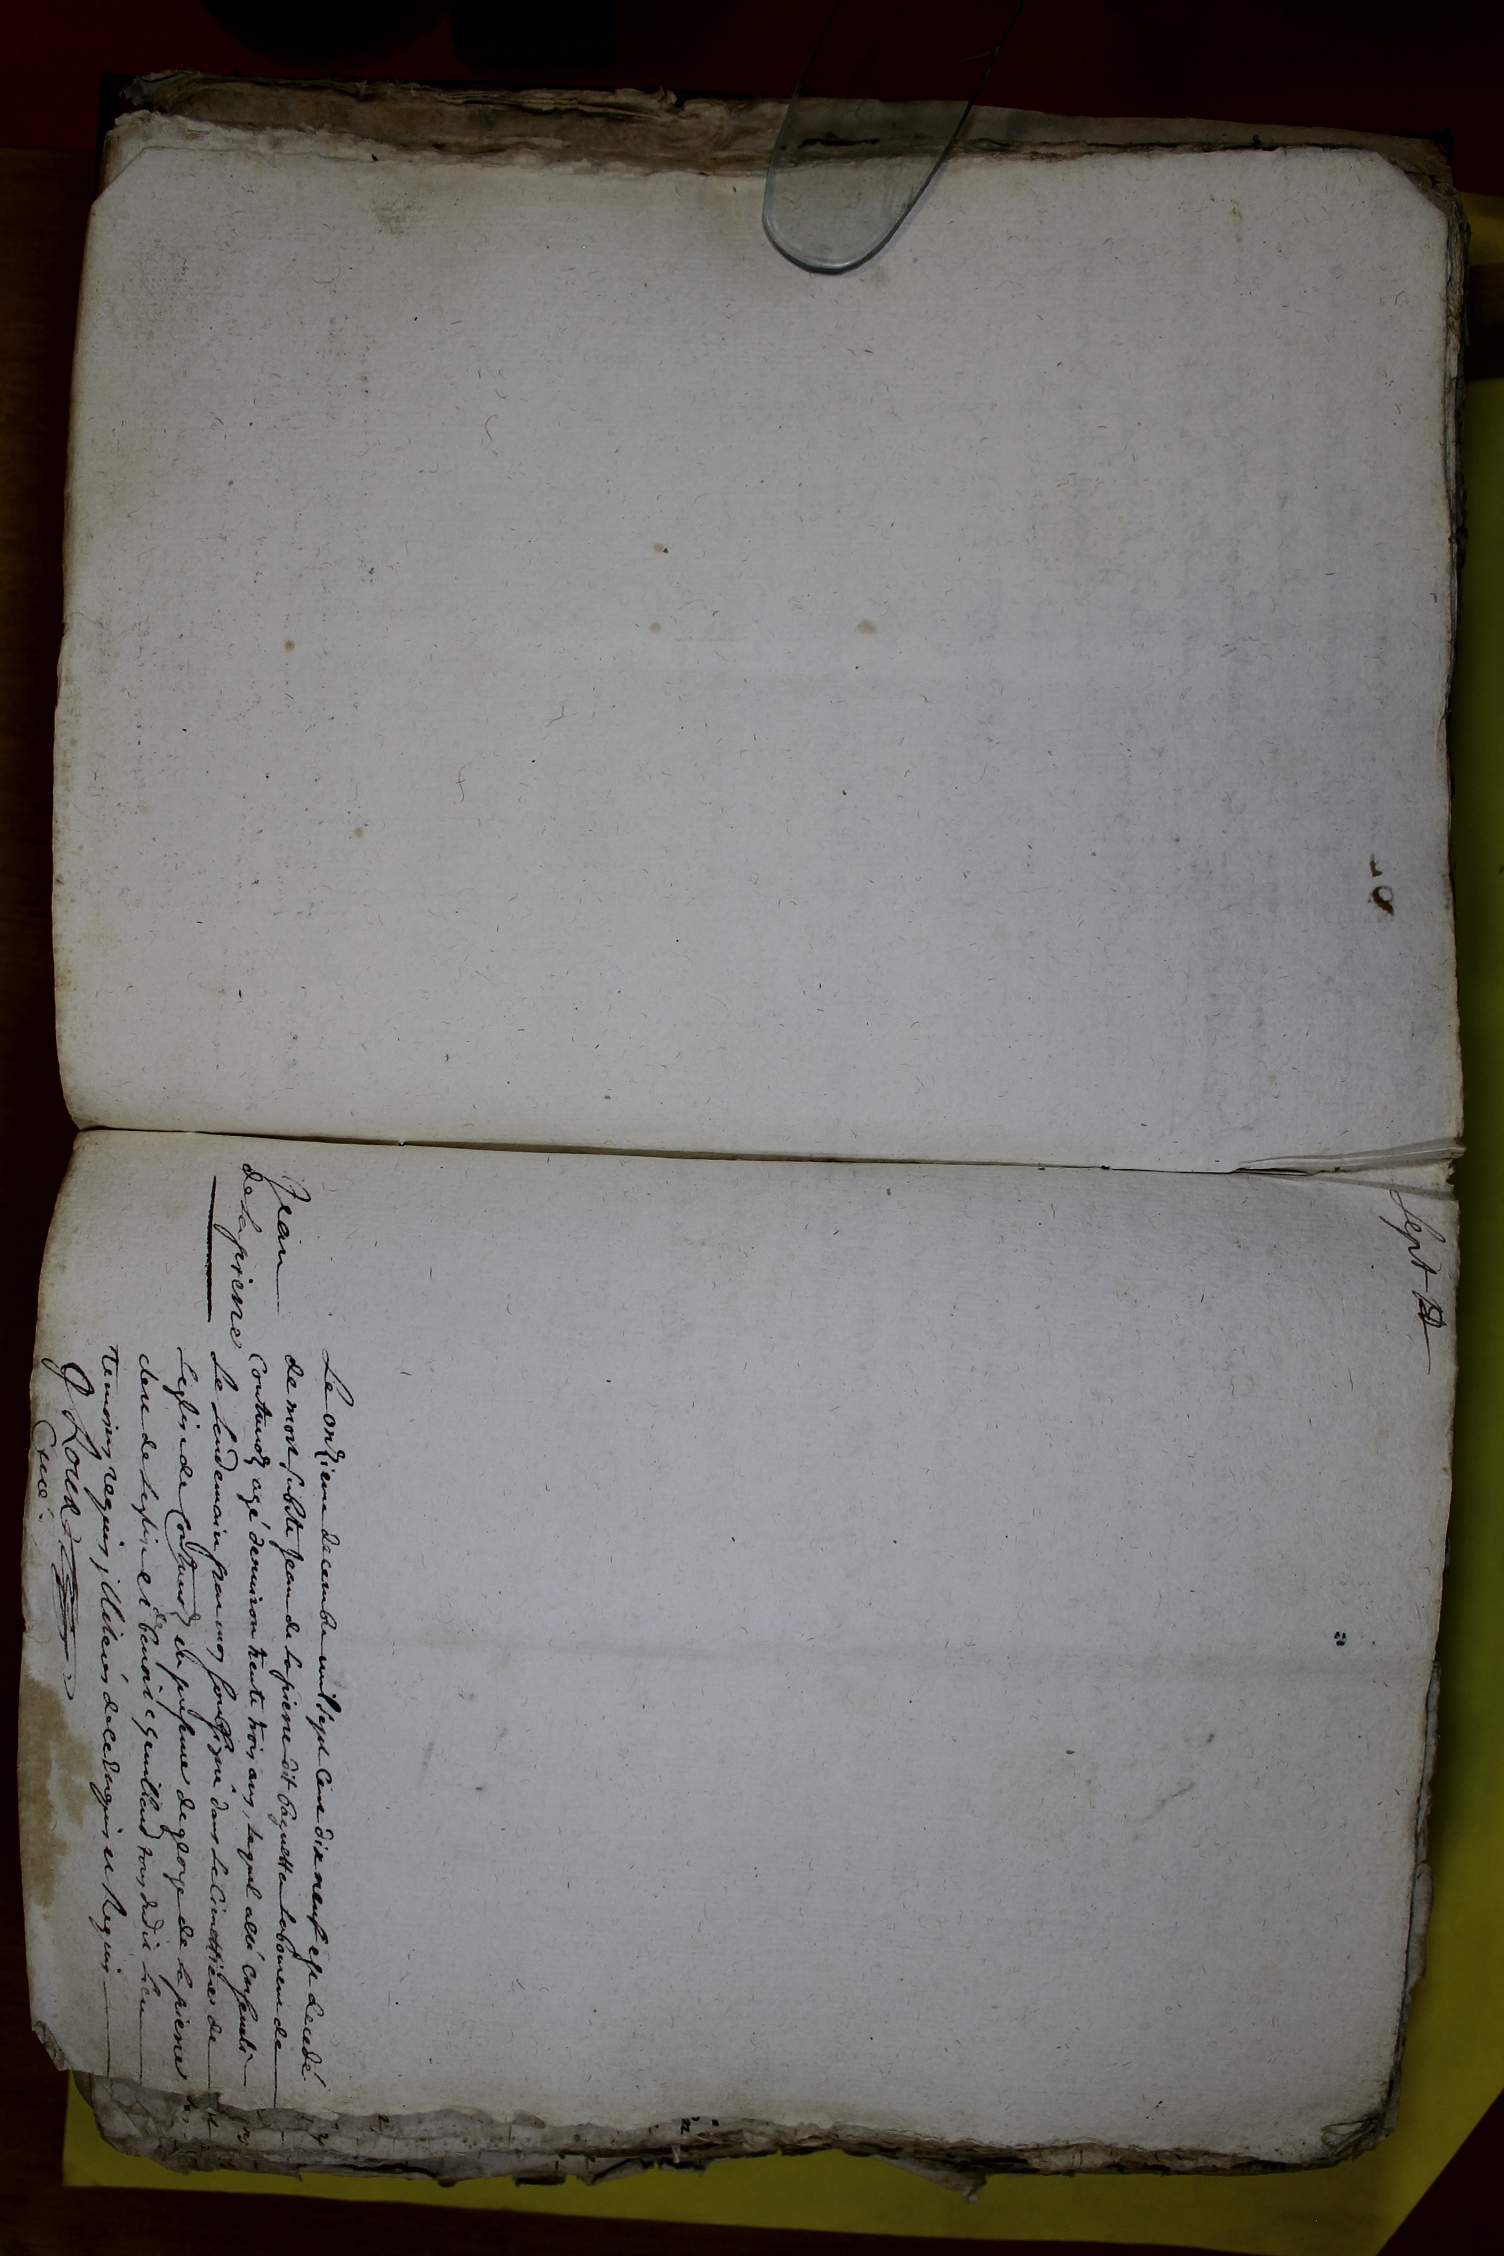 Sept
Jean
de la pierre
Le onzieme decembre mil sept cent dix neuf est decedé
de mort subite Jean de la pierre dit baguette laboureur de
Coutouz agé denviron trente trois ans, lequel a esté ensevelis
le lendemain par moy soussigné dans le cimettiere de
leglise de Coutouz en presence de george de la pierre
clerc de leglise et de benoit genilland tous dudit lieu
temoins requis, illiterés de ce enquis et requis
Curé.